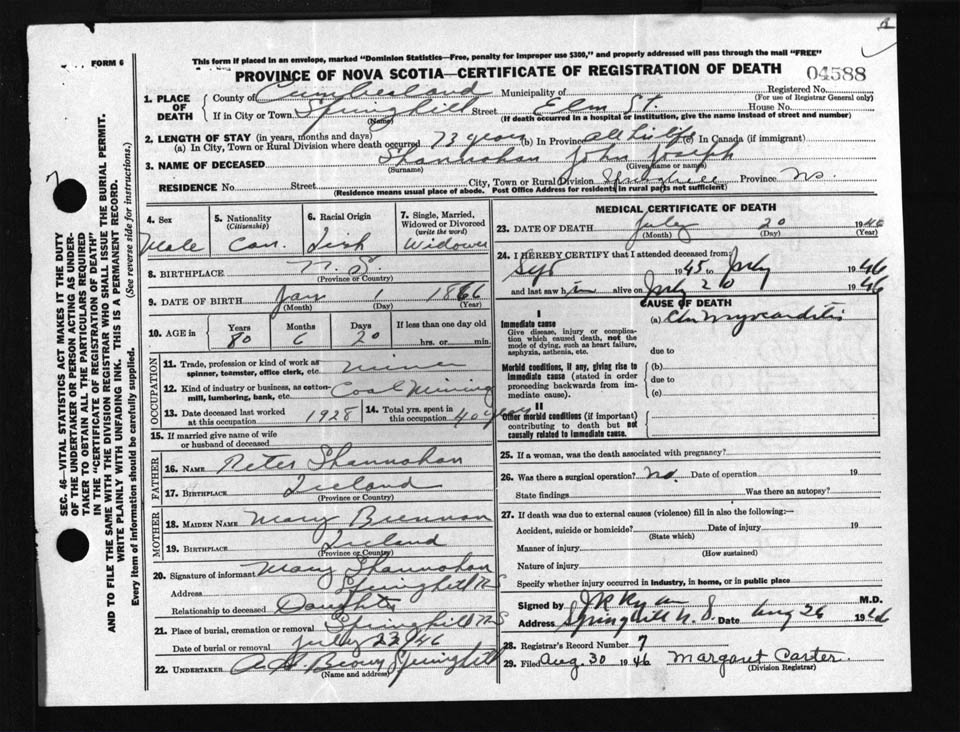 This form if placed in an envelope, marked "Dominion Statistics—Free, penalty for improper use $300," and properly addressed will pass through the mail "FREE"
FORM 6
PROVINCE OF NOVA SCOTIA—CERTIFICATE OF REGISTRATION OF DEATH
04588
SEC. 46—VITAL STATISTICS ACT MAKES IT THE DUTY
OF THE UNDERTAKER OR PERSON ACTING AS UNDER-
TAKER TO OBTAIN ALL THE PARTICULARS REQUIRED
IN THE "CERTIFICATE OF REGISTRATION OF DEATH"
AND TO FILE THE SAME WITH THE DIVISION REGISTRAR WHO SHALL ISSUE THE BURIAL PERMIT.
WRITE PLAINLY WITH UNFADING INK. THIS IS A PERMANENT RECORD.
Every item of information should be carefully supplied. (See reverse side for instructions.)
1. PLACE OF DEATH
County of Cumberland Municipality of Registered No.
(For use of Registrar General only)
If in City or Town Springhill Street Elm St. House No.
(Name) (If death occurred in a hospital or institution, give the name instead of street and number)
2. LENGTH OF STAY (in years, months and days)
(a) In City, Town or Rural Division where death occurred 73 years (b) In Province all his life (c) In Canada (if immigrant)
3. NAME OF DECEASED Shannohan John Joseph
(Surname) (Given name or names)
RESIDENCE No. Street City, Town or Rural Division Springhill Province N.S.
(Residence means usual place of abode. Post Office Address for residents in rural parts not sufficient)
4. Sex 5. Nationality (Citizenship) 6. Racial Origin 7. Single, Married, Widowed or Divorced (write the word)
Male Can. Irish Widower
8. BIRTHPLACE N. S.
(Province or Country)
9. DATE OF BIRTH Jan 1 1866
(Month) (Day) (Year)
10. AGE in Years Months Days If less than one day old
80 6 20 hrs. or min.
OCCUPATION
11. Trade, profession or kind of work as spinner, teamster, office clerk, etc. miner
12. Kind of industry or business, as cotton mill, lumbering, bank, etc. Coal Mining
13. Date deceased last worked at this occupation 1928 14. Total yrs. spent in this occupation 40 years
15. If married give name of wife or husband of deceased
FATHER
16. NAME Peter Shannohan
17. BIRTHPLACE Ireland
(Province or Country)
MOTHER
18. MAIDEN NAME Mary Brennan
19. BIRTHPLACE Ireland
(Province or Country)
20. Signature of informant Mary Shannohan
Address Springhill NS
Relationship to deceased Daughter
21. Place of burial, cremation or removal Springhill NS
Date of burial or removal July 23/46
22. UNDERTAKER A. H. Brown Springhill
(Name and address)
MEDICAL CERTIFICATE OF DEATH
23. DATE OF DEATH July 20 1946
(Month) (Day) (Year)
24. I HEREBY CERTIFY that I attended deceased from:
Sept 1945 to July 1946
and last saw him alive on July 20 1946
CAUSE OF DEATH
I
Immediate cause (a) Chr Myocarditis
Give disease, injury or complication which caused death, not the mode of dying, such as heart failure, asphyxia, asthenia, etc.
due to
Morbid conditions, if any, giving rise to immediate cause (stated in order proceeding backwards from immediate cause).
(b)
due to
(c)
II
Other morbid conditions (if important) contributing to death but not causally related to immediate cause.
25. If a woman, was the death associated with pregnancy?
26. Was there a surgical operation? no. Date of operation 19
State findings Was there an autopsy?
27. If death was due to external causes (violence) fill in also the following:—
Accident, suicide or homicide? Date of injury 19
(State which)
Manner of injury
(How sustained)
Nature of injury
Specify whether injury occurred in industry, in home, or in public place
Signed by J R Ryan M.D.
Address Springhill N.S. Date Aug 26 1946
28. Registrar's Record Number 7
29. Filed Aug. 30 1946 Margaret Carter.
(Division Registrar)